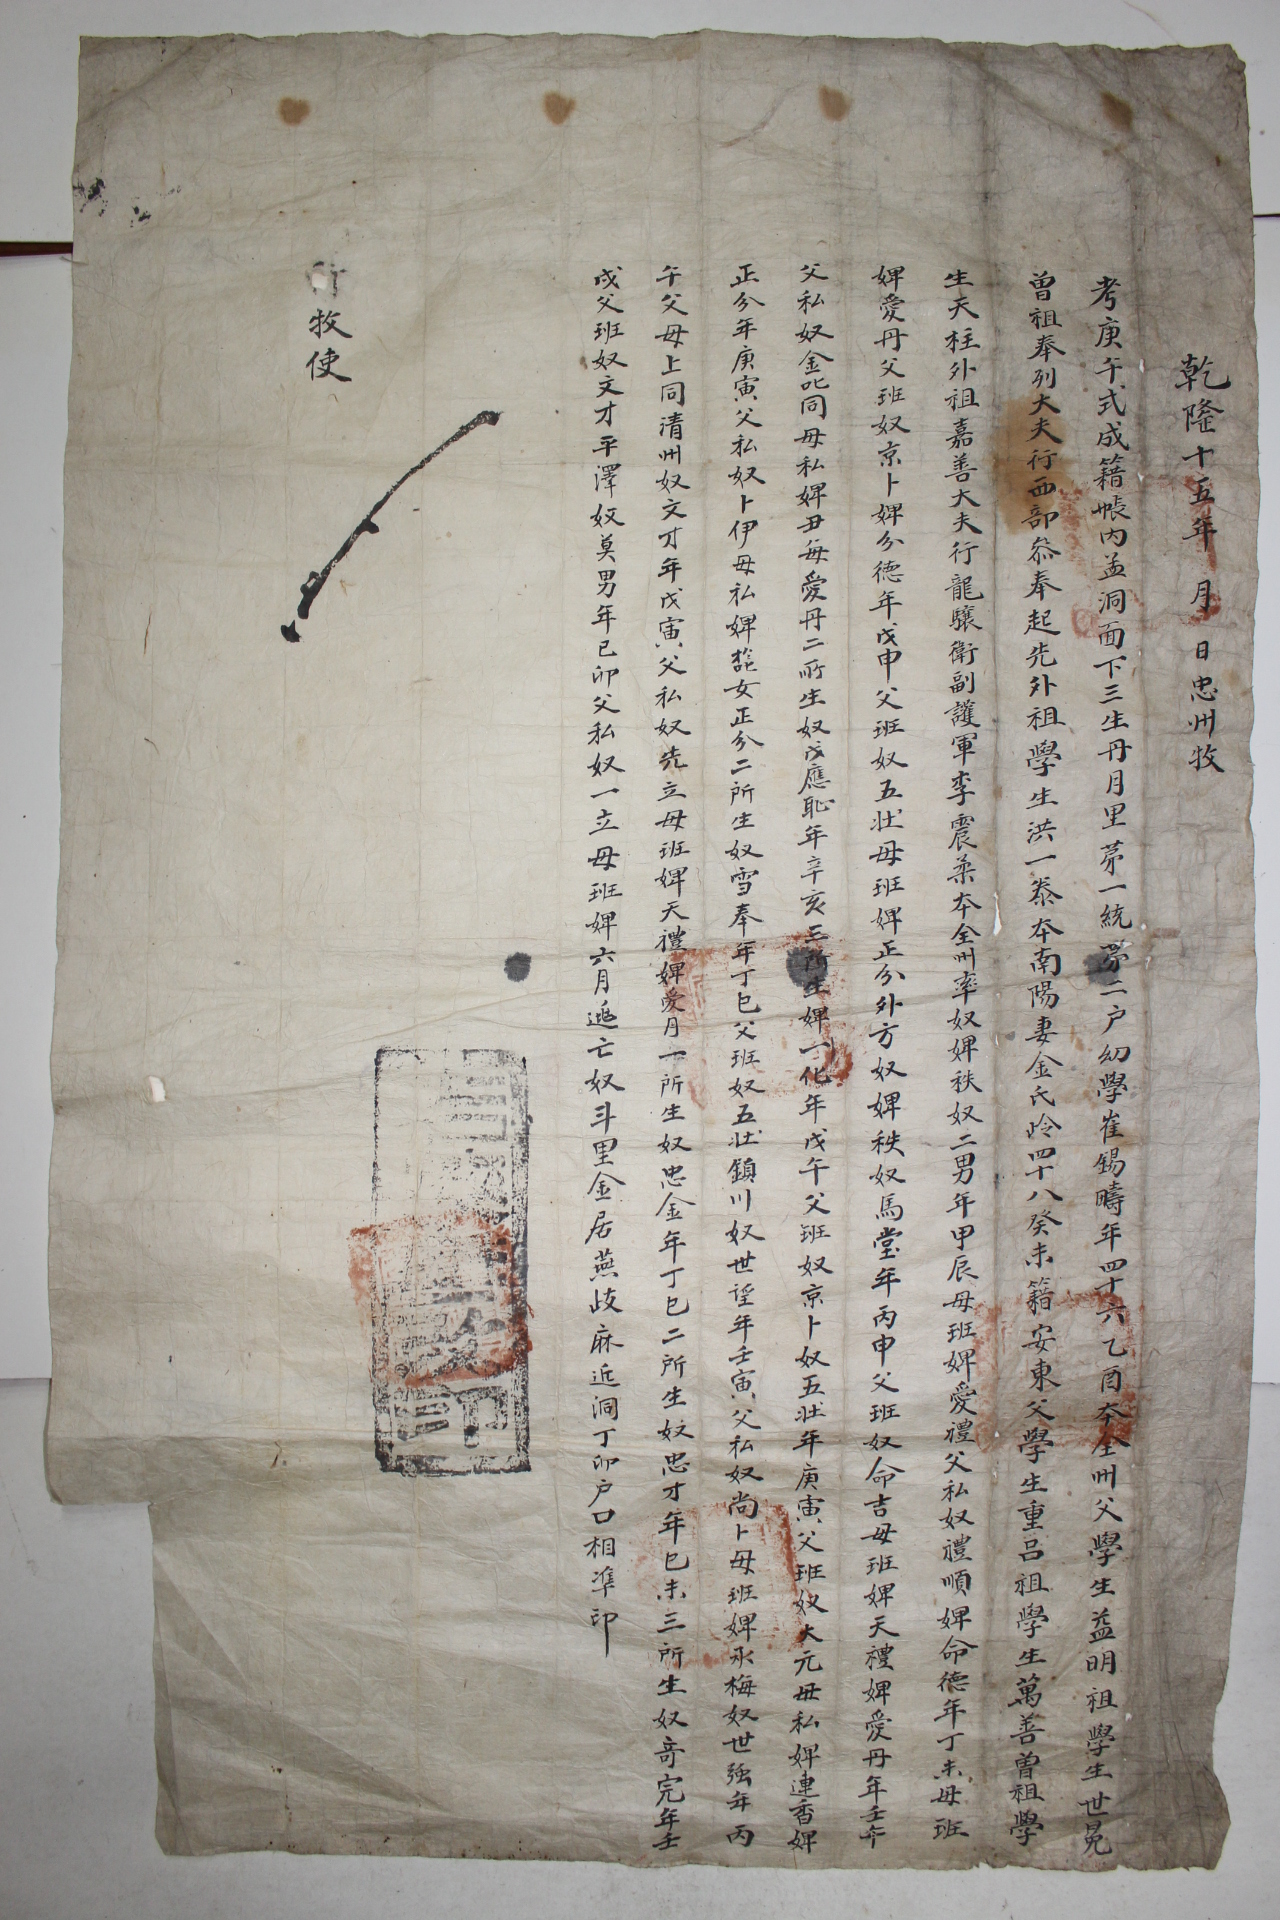 乾隆十五年 月 日忠州牧
考庚午式成籍帳內孟洞面下三生丹月里第一統第二户幼學崔錫疇年四十六乙酉本全州父學生益明祖學生世冕
曾祖奉列大夫行西部參奉起先外祖學生洪一泰本南陽妻金氏齡四十八癸未籍安東父學生重呂祖學生萬善曾祖學
生天柱外祖嘉善大夫行龍驤衛副護軍李震柔本全州率奴婢秩奴二男年甲辰母班婢愛禮父私奴禮順婢命德年丁未母班
婢愛丹父班奴京卜婢分德年戊申父班奴五壯母班婢正分外方奴婢秩奴馬堂年丙申父班奴命吉母班婢天禮婢愛丹年壬午
父私奴金叱同母私婢丑每愛丹二所生奴戊應耻年辛亥三所生婢一化年戊午父班奴京卜奴五壯年庚寅父班奴大元母私婢連香婢
正分年庚寅父私奴卜伊母私婢 女正分二所生奴雪奉年丁巳父班奴五壯鎮川奴世望年壬寅父私奴尚卜母班婢承梅奴世強年丙
午父母上同清州奴文才年戊寅父私奴先立母班婢天禮婢愛月一所生奴忠金年丁巳二所生奴忠才年己未三所生奴奇完年壬
戌父班奴文才平澤奴莫男年己卯父私奴一立母班婢六月逃亡奴斗里金居燕歧麻近洞丁卯户口相準印
行牧使